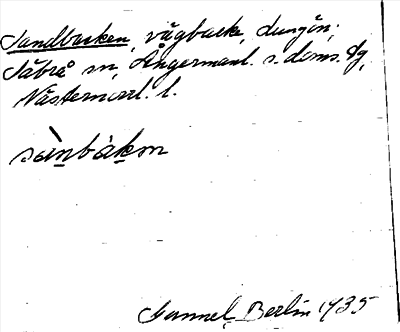 Sandbacken, vägbacke, Lungön,
Säbrå sn, Ångermanl. s. doms. dg,
Västernorrl. l.
sàn̲bàk̲en
Gunnel Berlin 1935